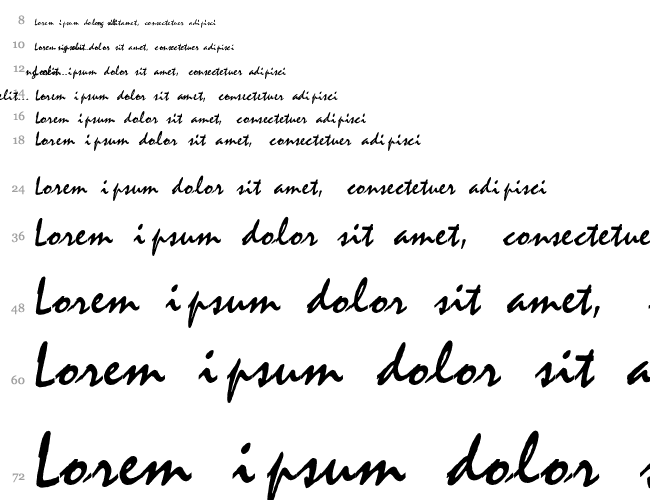 8 Lorem ipsum dolor sit amet, consectetuer adipisci
10 Lorem ipsum dolor sit amet, consectetuer adipisci
12 Lorem ipsum dolor sit amet, consectetuer adipisci
14 elit... Lorem ipsum dolor sit amet, consectetuer adipisci
16 Lorem ipsum dolor sit amet, consectetuer adipisci
18 Lorem ipsum dolor sit amet, consectetuer adipisci
24 Lorem ipsum dolor sit amet, consectetuer adipisci
36 Lorem ipsum dolor sit amet, consectetue
48 Lorem ipsum dolor sit amet,
60 Lorem ipsum dolor sit a
72 Lorem ipsum dolor s